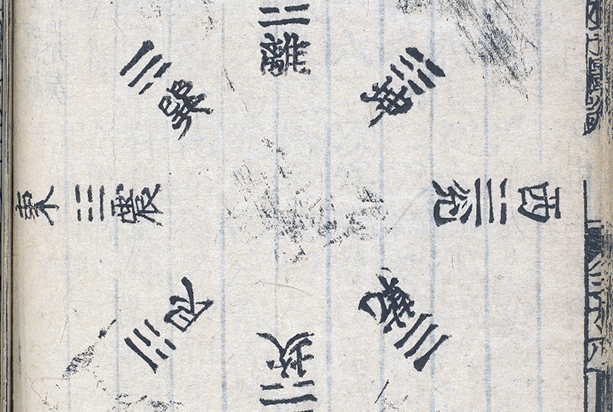 離
巽
坤
東 震
西 兌
艮
乾
坎